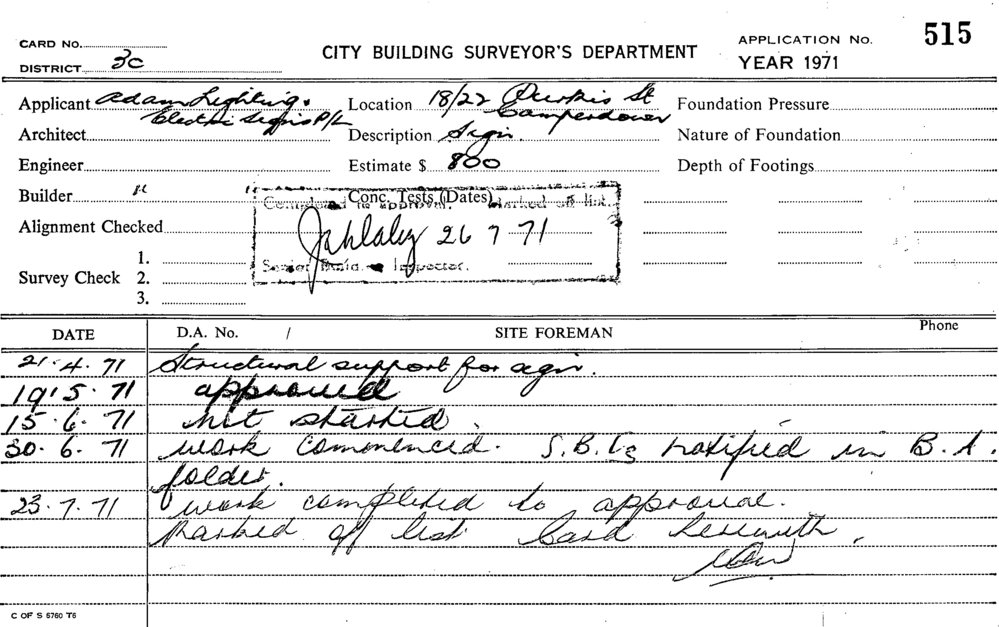 515
CARD NO.
CITY BUILDING SURVEYOR'S DEPARTMENT
APPLICATION No.
DISTRICT 3c
YEAR 1971
Applicant Adam Lighting &
Electric Signs P/L
Location 18/22 St
Camperdown
Foundation Pressure
Architect
Description Sign.
Nature of Foundation
Engineer
Estimate $ 800
Depth of Footings
Builder
Conc. Tests (Dates)
Completed to approval. Marked off list.
Alignment Checked
26 7 71
Senior Build. Inspector.
1.
Survey Check 2.
3.
DATE D.A. No. / SITE FOREMAN Phone
21.4.71 Structural support for sign.
19.5.71 approved
15.6.71 not started.
30.6.71 work commenced. S.B.I. notified in B.A.
folder.
23.7.71 work completed to approval.
Marked off list Card herewith.
C OF S 6760 T6